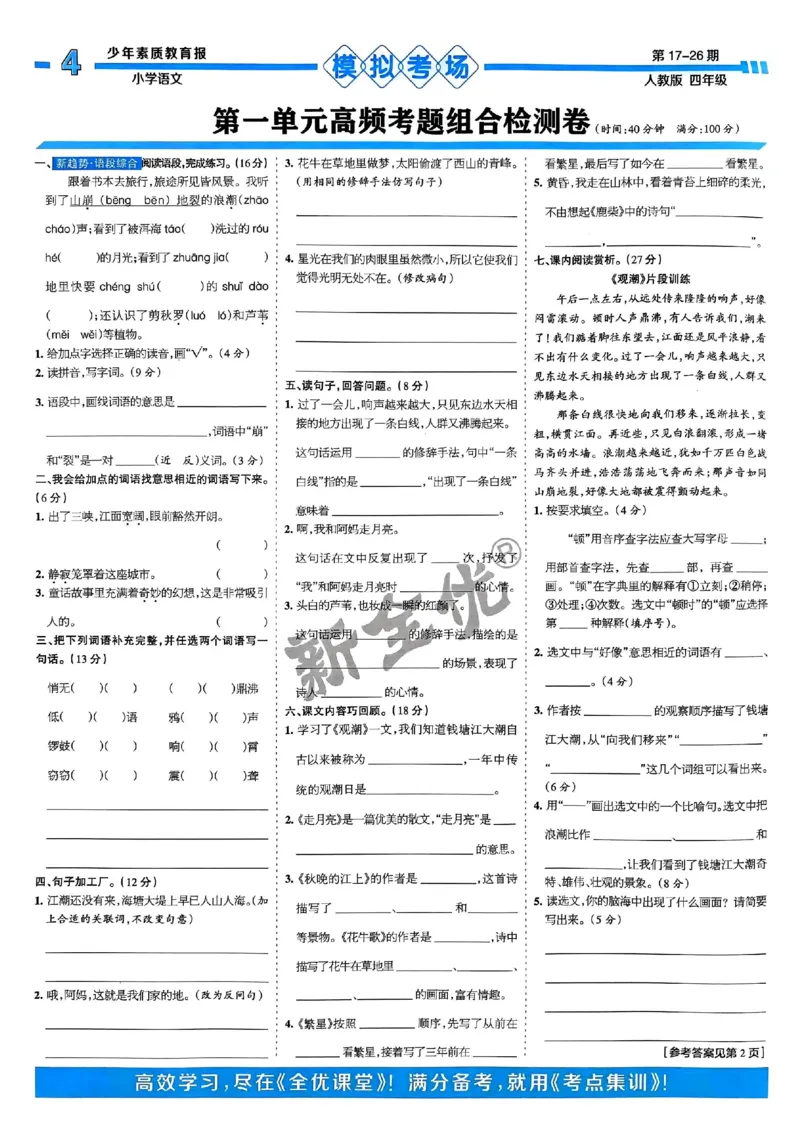 4
少年素质教育报
小学语文
模拟考场
第17-26期
人教版 四年级
第一单元高频考题组合检测卷(时间:40分钟 满分:100分)
一、新趋势·语段综合 阅读语段,完成练习。(16分)
跟着书本去旅行,旅途所见皆风景。我听
到了山崩(bēng bēn)地裂的浪潮(zhāo
cháo)声;看到了被洱海táo( )洗过的róu
hé( )的月光;看到了zhuāng jia( )
地里快要 chéng shú( )的 shuǐ dào
( );还认识了剪秋罗(luó ló)和芦苇
(měi wěi)等植物。
1. 给加点字选择正确的读音,画“√”。(4分)
2. 读拼音,写字词。(9分)
3. 语段中,画线词语的意思是____________
____________,词语中“崩”
和“裂”是一对______(近 反)义词。(3分)
二、我会给加点的词语找意思相近的词语写下来。
(6分)
1. 出了三峡,江面宽阔,眼前豁然开朗。
( )
2. 静寂笼罩着这座城市。 ( )
3. 童话故事里充满着奇妙的幻想,这是非常吸引
人的。 ( )
三、把下列词语补充完整,并任选两个词语写一
句话。(13分)
悄无( )( ) ( )( )鼎沸
低( )( )语 鸦( )( )声
锣鼓( )( ) 响( )( )霄
窃窃( )( ) 震( )( )聋
四、句子加工厂。(12分)
1. 江潮还没有来,海塘大堤上早已人山人海。(加
上合适的关联词,不改变句意)
2. 哦,阿妈,这就是我们家的地。(改为反问句)
3. 花牛在草地里做梦,太阳偷渡了西山的青峰。
(用相同的修辞手法仿写句子)
4. 星光在我们的肉眼里虽然微小,所以它使我们
觉得光明无处不在。(修改病句)
五、读句子,回答问题。(8分)
1. 过了一会儿,响声越来越大,只见东边水天相
接的地方出现了一条白线,人群又沸腾起来。
这句话运用______的修辞手法,句中“一条
白线”指的是________,“出现了一条白线”
意味着____________。
2. 啊,我和阿妈走月亮。
这句话在文中反复出现了____次,抒发了
“我”和阿妈走月亮时________的心情。
3. 头白的芦苇,也妆成一瞬的红颜了。
这句话运用______的修辞手法,描绘的是
____________的场景,表现了
诗人________的心情。
六、课文内容巧回顾。(18分)
1. 学习了《观潮》一文,我们知道钱塘江大潮自
古以来被称为____________,一年中传
统的观潮日是____________。
2. 《走月亮》是一篇优美的散文,“走月亮”是____
____________的意思。
3. 《秋晚的江上》的作者是________,这首诗
描写了________、________和________
等景物。《花牛歌》的作者是________,诗中
描写了花牛在草地里________、________、
________、________的画面,富有情趣。
4. 《繁星》按照________顺序,先写了从前在
______看繁星,接着写了三年前在______
看繁星,最后写了如今在________看繁星。
5. 黄昏,我走在山林中,看着青苔上细碎的柔光,
不由想起《鹿柴》中的诗句“____________
________,____________”。
七、课内阅读赏析。(27分)
《观潮》片段训练
午后一点左右,从远处传来隆隆的响声,好像
闷雷滚动。顿时人声鼎沸,有人告诉我们,潮来
了!我们踮着脚往东望去,江面还是风平浪静,看
不出有什么变化。过了一会儿,响声越来越大,只
见东边水天相接的地方出现了一条白线,人群又
沸腾起来。
那条白线很快地向我们移来,逐渐拉长,变
粗,横贯江面。再近些,只见白浪翻滚,形成一堵
高高的水墙。浪潮越来越近,犹如千万匹白色战
马齐头并进,浩浩荡荡地飞奔而来;那声音如同
山崩地裂,好像大地都被震得颤动起来。
1. 按要求填空。(4分)
“顿”用音序查字法应查大写字母____;
用部首查字法,先查____部,再查____
画。“顿”在字典里的解释有①立刻;②稍停;
③处理;④次数。选文中“顿时”的“顿”应选择
第____种解释(填序号)。
2. 选文中与“好像”意思相近的词语有______、
______。(4分)
3. 作者按________的观察顺序描写了钱塘
江大潮,从“向我们移来”“____________”
“____________”这几个词组可以看出来。
(6分)
4. 用“——”画出选文中的一个比喻句。选文中把
浪潮比作____________、____________和
____________,让我们看到了钱塘江大潮奇
特、雄伟、壮观的景象。(8分)
5. 读选文,你的脑海中出现了什么画面?请简要
写出来。(5分)
[参考答案见第2页]
新全优®
高效学习,尽在《全优课堂》!满分备考,就用《考点集训》!